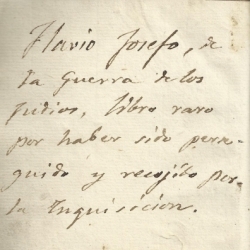 Flavio Josefo, de
la Guerra de los
Judios, libro raro
por haber sido perse-
guido y recojido por
la Inquisicion.